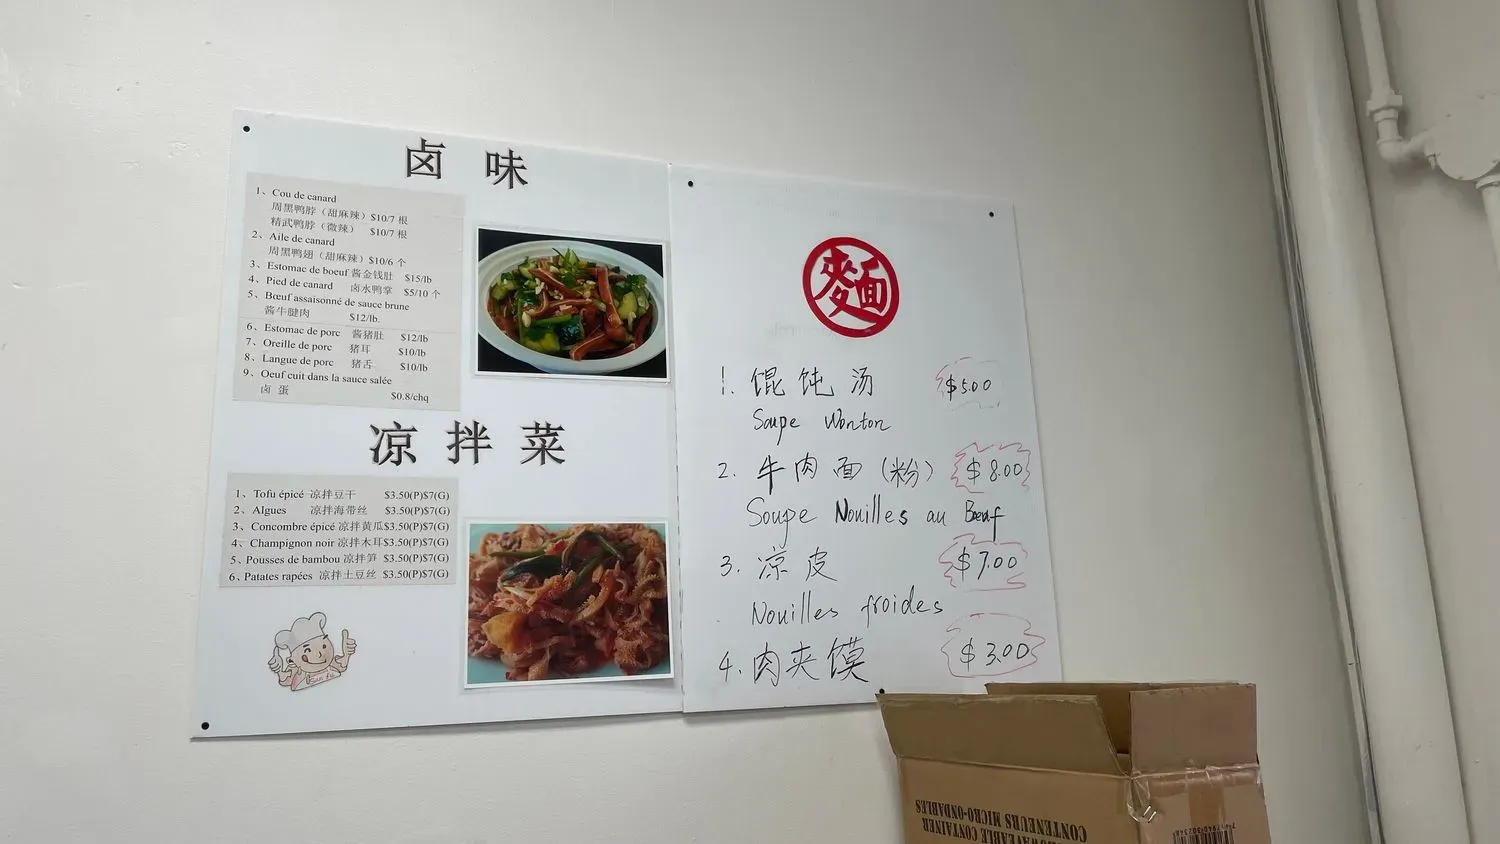 卤味
1、Cou de canard
周黑鸭脖（甜麻辣）$10/7 根
精武鸭脖（微辣） $10/7 根
2、Aile de canard
周黑鸭翅（甜麻辣）$10/6 个
3、Estomac de boeuf 酱金钱肚 $15/lb
4、Pied de canard 卤水鸭掌 $5/10 个
5、Bœuf assaisonné de sauce brune
酱牛腱肉 $12/lb.
6、Estomac de porc 酱猪肚 $12/lb
7、Oreille de porc 猪耳 $10/lb
8、Langue de porc 猪舌 $10/lb
9、Oeuf cuit dans la sauce salée
卤 蛋 $0.8/chq
凉拌菜
1、Tofu épicé 凉拌豆干 $3.50(P)$7(G)
2、Algues 凉拌海带丝 $3.50(P)$7(G)
3、Concombre épicé 凉拌黄瓜$3.50(P)$7(G)
4、Champignon noir 凉拌木耳$3.50(P)$7(G)
5、Pousses de bambou 凉拌笋 $3.50(P)$7(G)
6、Patates rapées 凉拌土豆丝 $3.50(P)$7(G)
麵
1. 馄饨汤 $5.00
Soupe Wonton
2. 牛肉面（粉） $8.00
Soupe Nouilles au Boeuf
3. 凉皮 $7.00
Nouilles froides
4. 肉夹馍 $3.00
CONTENEURS MICRO-ONDABLES
CONTAINER